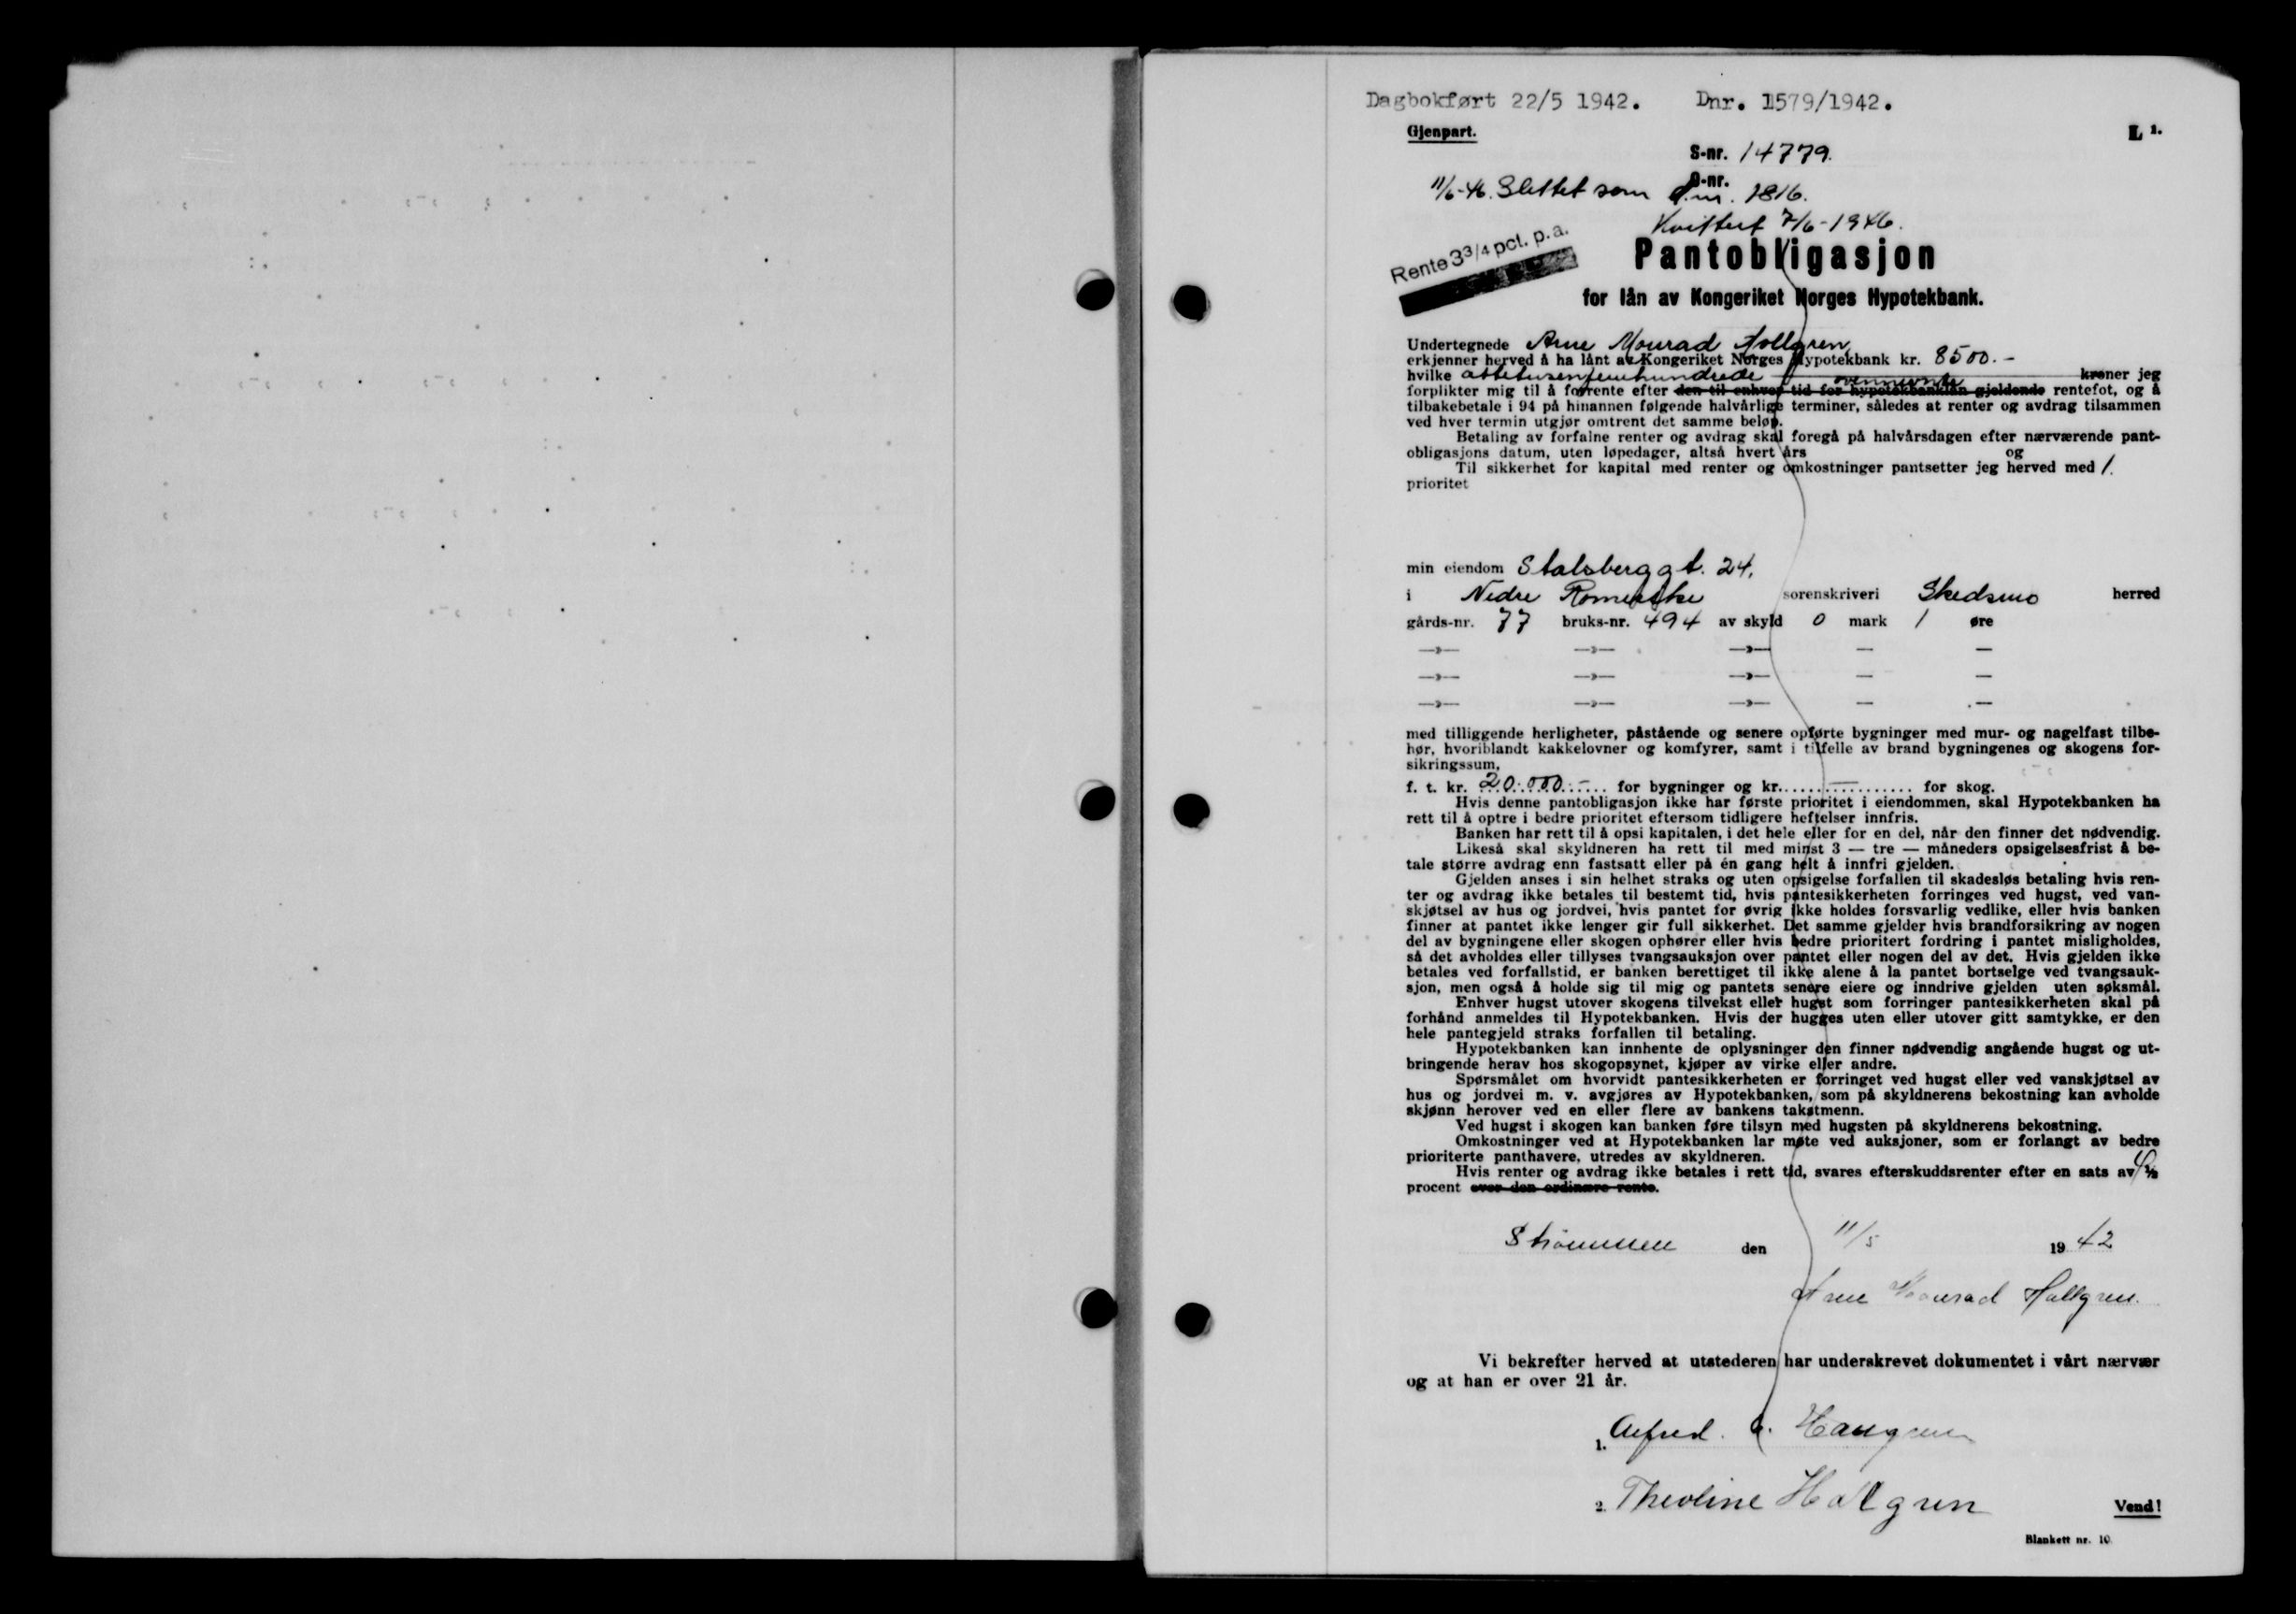 Dagbokført 22/5 1942. Dnr. 1579/1942.
Gjenpart.
L 1.
S-nr. 14779.
O-nr.
11/6-46. Slettet som d.nr. 1816.
Kvittert 7/6-1946.
Rente 3 3/4 pct. p.a.
Pantobligasjon
for lån av Kongeriket Norges Hypotekbank.
Undertegnede Arne Konrad Hallgren
erkjenner herved å ha lånt av Kongeriket Norges Hypotekbank kr. 8500.-
hvilke åttetusenfemhundrede kroner jeg
forplikter mig til å forrente efter den til enhver tid for hypotekbanklån gjeldende ovennevnte rentefot, og å
tilbakebetale i 94 på hinannen følgende halvårlige terminer, således at renter og avdrag tilsammen
ved hver termin utgjør omtrent det samme beløp.
Betaling av forfalne renter og avdrag skal foregå på halvårsdagen efter nærværende pant-
obligasjons datum, uten løpedager, altså hvert års og
Til sikkerhet for kapital med renter og omkostninger pantsetter jeg herved med 1.
prioritet
min eiendom Stalsberggt. 24.
i Nedre Romerike sorenskriveri Skedsmo herred
gårds-nr. 77 bruks-nr. 494 av skyld 0 mark 1 øre
—»— —»— —»— — —
—»— —»— —»— — —
—»— —»— —»— — —
med tilliggende herligheter, påstående og senere opførte bygninger med mur- og nagelfast tilbe-
hør, hvoriblandt kakkelovner og komfyrer, samt i tilfelle av brand bygningenes og skogens for-
sikringssum,
f. t. kr. 20.000.- for bygninger og kr. — for skog.
Hvis denne pantobligasjon ikke har første prioritet i eiendommen, skal Hypotekbanken ha
rett til å optre i bedre prioritet eftersom tidligere heftelser innfris.
Banken har rett til å opsi kapitalen, i det hele eller for en del, når den finner det nødvendig.
Likeså skal skyldneren ha rett til med minst 3 — tre — måneders opsigelsesfrist å be-
tale større avdrag enn fastsatt eller på én gang helt å innfri gjelden.
Gjelden anses i sin helhet straks og uten opsigelse forfallen til skadesløs betaling hvis ren-
ter og avdrag ikke betales til bestemt tid, hvis pantesikkerheten forringes ved hugst, ved van-
skjøtsel av hus og jordvei, hvis pantet for øvrig ikke holdes forsvarlig vedlike, eller hvis banken
finner at pantet ikke lenger gir full sikkerhet. Det samme gjelder hvis brandforsikring av nogen
del av bygningene eller skogen ophører eller hvis bedre prioritert fordring i pantet misligholdes,
så det avholdes eller tillyses tvangsauksjon over pantet eller nogen del av det. Hvis gjelden ikke
betales ved forfallstid, er banken berettiget til ikke alene å la pantet bortselge ved tvangsauk-
sjon, men også å holde sig til mig og pantets senere eiere og inndrive gjelden uten søksmål.
Enhver hugst utover skogens tilvekst eller hugst som forringer pantesikkerheten skal på
forhånd anmeldes til Hypotekbanken. Hvis der hugges uten eller utover gitt samtykke, er den
hele pantegjeld straks forfallen til betaling.
Hypotekbanken kan innhente de oplysninger den finner nødvendig angående hugst og ut-
bringende herav hos skogopsynet, kjøper av virke eller andre.
Spørsmålet om hvorvidt pantesikkerheten er forringet ved hugst eller ved vanskjøtsel av
hus og jordvei m. v. avgjøres av Hypotekbanken, som på skyldnerens bekostning kan avholde
skjønn herover ved en eller flere av bankens takstmenn.
Ved hugst i skogen kan banken føre tilsyn med hugsten på skyldnerens bekostning.
Omkostninger ved at Hypotekbanken lar møte ved auksjoner, som er forlangt av bedre
prioriterte panthavere, utredes av skyldneren.
Hvis renter og avdrag ikke betales i rett tid, svares efterskuddsrenter efter en sats av 4 1/2
procent over den ordinære rente.
Strømmen den 11/5 1942
Arne Konrad Hallgren.
Vi bekrefter herved at utstederen har underskrevet dokumentet i vårt nærvær
og at han er over 21 år.
1. Alfred
2. Theoline Halgren
Vend!
Blankett nr. 10